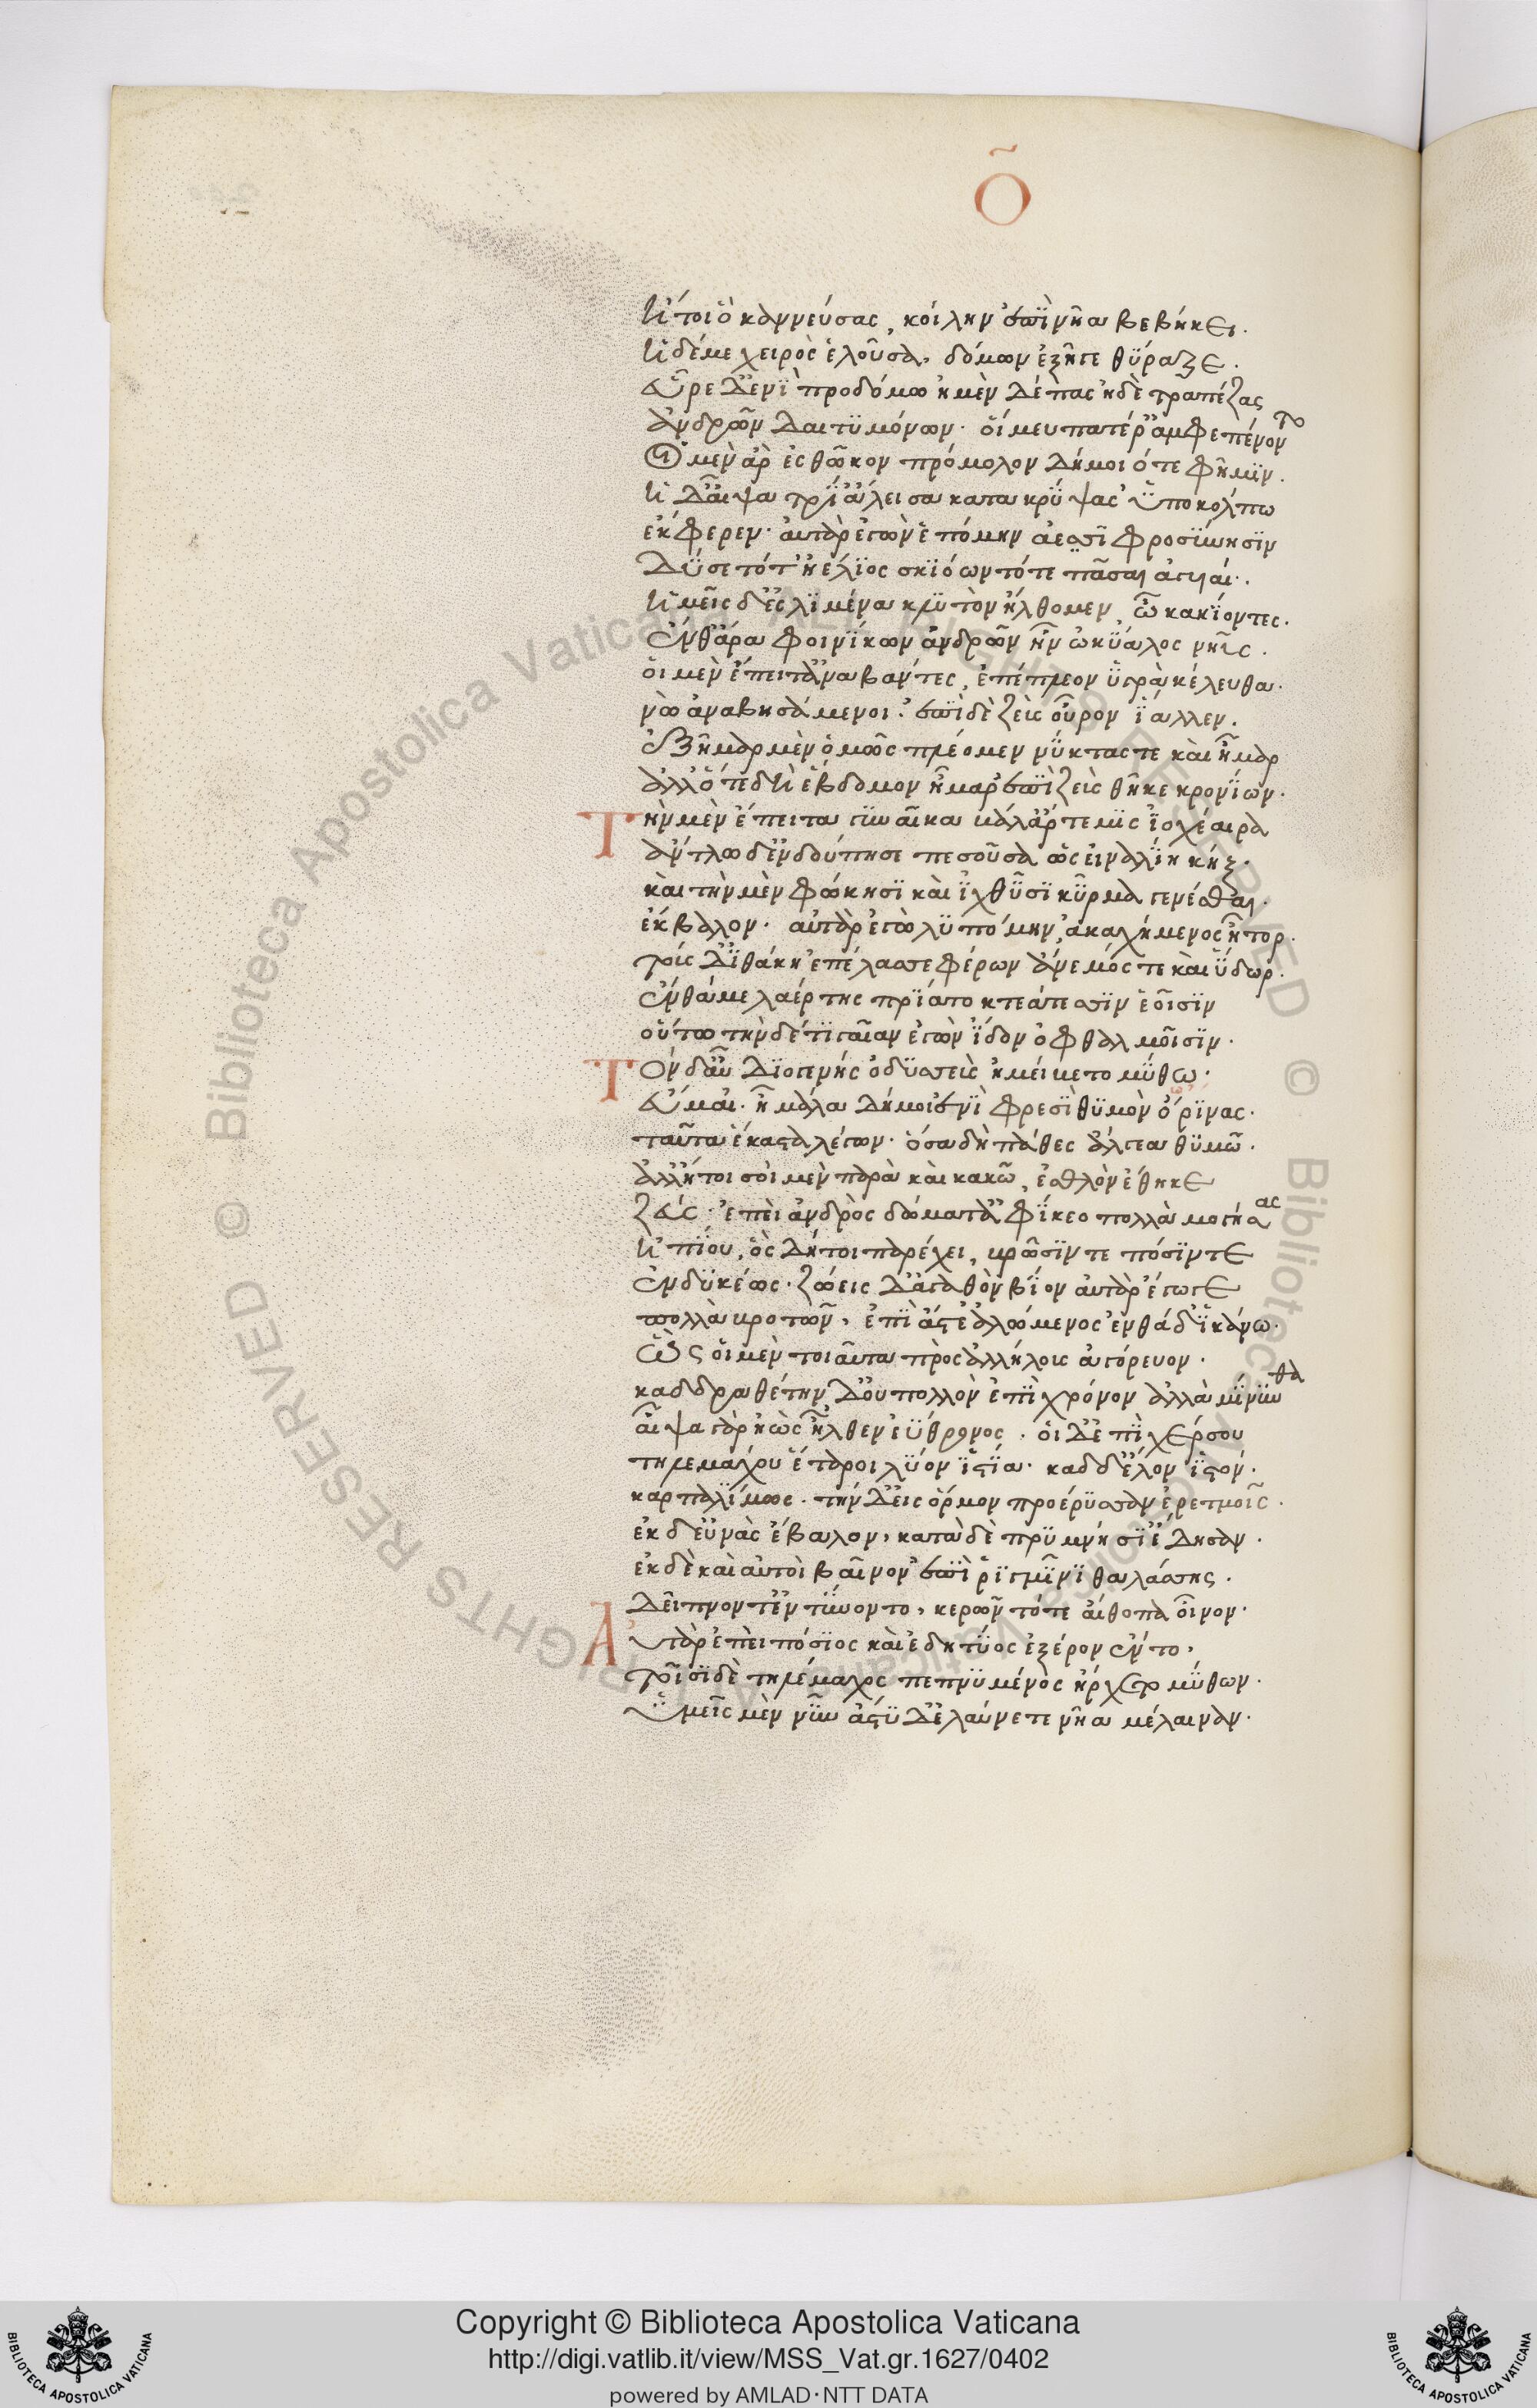 Ὀ
Ἤτοι ὃ καννεύσας, κοίλην ἐπὶ νῆα βεβήκει.
Ἡ δέ με χειρὸς ἑλοῦσα, δόμων ἐξῆγε θύραζε.
εὗρε δ' ἐνὶ προδόμω ἠμὲν δέπας ἠδὲ τραπέζας
ἀνδρῶν δαιτυμόνων. οἵ μευ πατέρ' ἀμφεπένοντο
Οἱ μὲν ἂρ ἐς θῶκον πρόμολον δήμοιό τε φῆμιν.
Ἡ δ' αἶψα τρί' ἄλεισα κατακρύψασ' ὑπὸ κόλπω
ἔκφερεν. αὐτὰρ ἐγὼν ἑπόμην ἀεσιφροσύνησιν
Δύσετό τ' ἠέλιος σκιόωντό τε πᾶσαι ἀγυιαί.
Ἡμεῖς δ' ἐς λιμένα κλυτὸν ἤλθομεν, ὦκα κιόντες.
Ἔνθ' ἄρα φοινίκων ἀνδρῶν ἦν ὠκύαλος νηῦς.
οἱ μὲν ἔπειτ' ἀναβάντες, ἐπέπλεον ὑγρὰ κέλευθα.
νὼ ἀναβησάμενοι. ἐπὶ δὲ ζεὺς οὖρον ἴαλλεν.
Ἑξῆμαρ μὲν ὁμῶς πλέομεν νύκτας τε καὶ ἦμαρ
ἀλλ' ὅτε δὴ ἕβδομον ἦμαρ ἐπὶ ζεὺς θῆκε κρονίων.
Τὴν μὲν ἔπειτα γυναῖκα βάλ' ἄρτεμις ἰοχέαιρα
ἄντλω δ' ἐνδούπησε πεσοῦσα ὡς εἰναλίη κήξ.
καὶ τὴν μὲν φώκησι καὶ ἰχθύσι κῦρμα γενέσθαι.
ἔκβαλον. αὐτὰρ ἐγὼ λυπόμην, ἀκαχήμενος ἦτορ.
τοὺς δ' ἰθάκη ἐπέλασσε φέρων ἄνεμός τε καὶ ὕδωρ.
Ἔνθά με λαέρτης πρίατο κτεάτεσσιν ἑοῖσιν
οὕτω τήνδέ τι γαῖαν ἐγὼν ἴδον ὀφθαλμοῖσιν.
Τὸν δ' αὖ διογενὴς ὀδυσσεὺς ἠμείβετο μύθω.
Εὔμαι. ἦ μάλα δή μοι ἐνὶ φρεσὶ θυμὸν ὄρινας.
ταῦτα ἕκαστα λέγων. ὅσα δὴ πάθες ἄλγεα θυμῶ.
ἀλλ' ἤτοι σοὶ μὲν παρὰ καὶ κακῶ, ἐσθλὸν ἔθηκε
ζεύς. ἐπεὶ ἀνδρὸς δώματ' ἀφίκεο πολλὰ μογήσας
Ἠπίου, ὃς δή τοι παρέχει, βρῶσίν τε πόσιν τε
Ἐνδυκέως. ζώεις δ' ἀγαθὸν βίον αὐτὰρ ἔγωγε
πολλὰ βροτῶν, ἐπὶ ἄστε' ἀλώμενος ἐνθάδ' ἱκάνω.
Ὣς οἱ μὲν τοιαῦτα πρὸς ἀλλήλοις ἀγόρευον.
καδδραθέτην δ' οὐ πολλὸν ἐπὶ χρόνον ἀλλὰ μίνυνθα
αἶψα γὰρ ἠὼς ἦλθεν ἐΰθρονος. οἱ δ' ἐπὶ χέρσου
τηλεμάχου ἕταροι λύον ἱστία. καδδ' ἕλον ἱστόν.
καρπαλίμως. τὴν δ' εἰς ὅρμον προέρυσσαν ἐρετμοῖς.
ἐκ δ' εὐνὰς ἔβαλον, κατὰ δὲ πρυμνήσι' ἔδησαν.
ἐκ δὲ καὶ αὐτοὶ βαῖνον ἐπὶ ῥηγμῖνι θαλάσσης.
δεῖπνον τ' ἐντύνοντο, κερῶν τότε αἴθοπα οἶνον.
Αὐτὰρ ἐπεὶ πόσιος καὶ ἐδητύος ἐξ ἔρον ἕντο,
τοῖσι δὲ τηλέμαχος πεπνυμένος ἤρχετο μύθων.
Ὑμεῖς μὲν νῦν ἄστυ δ' ἐλαύνετε νῆα μέλαιναν.
© Biblioteca Apostolica Vaticana ALL RIGHTS RESERVED
© Biblioteca Apostolica Vaticana ALL RIGHTS RESERVED
Copyright © Biblioteca Apostolica Vaticana
http://digi.vatlib.it/view/MSS_Vat.gr.1627/0402
powered by AMLAD·NTT DATA
BIBLIOTECA APOSTOLICA VATICANA
BIBLIOTECA APOSTOLICA VATICANA